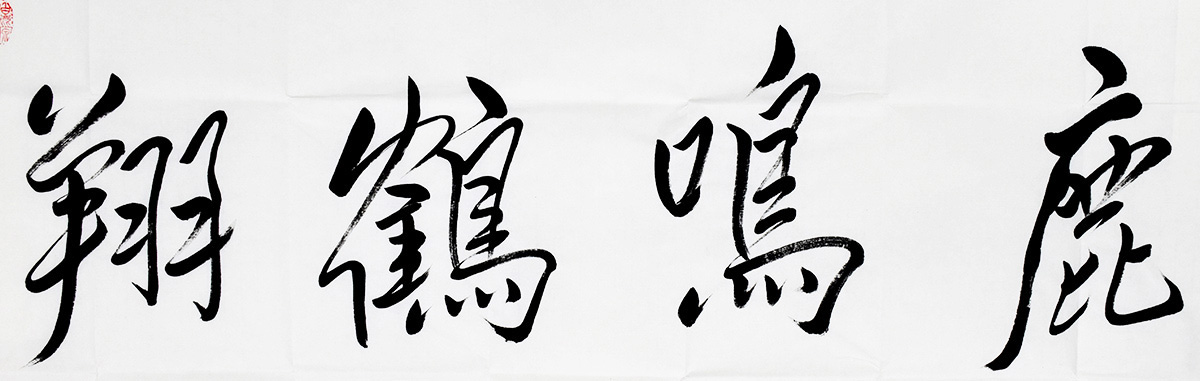 鹿鳴鶴翔